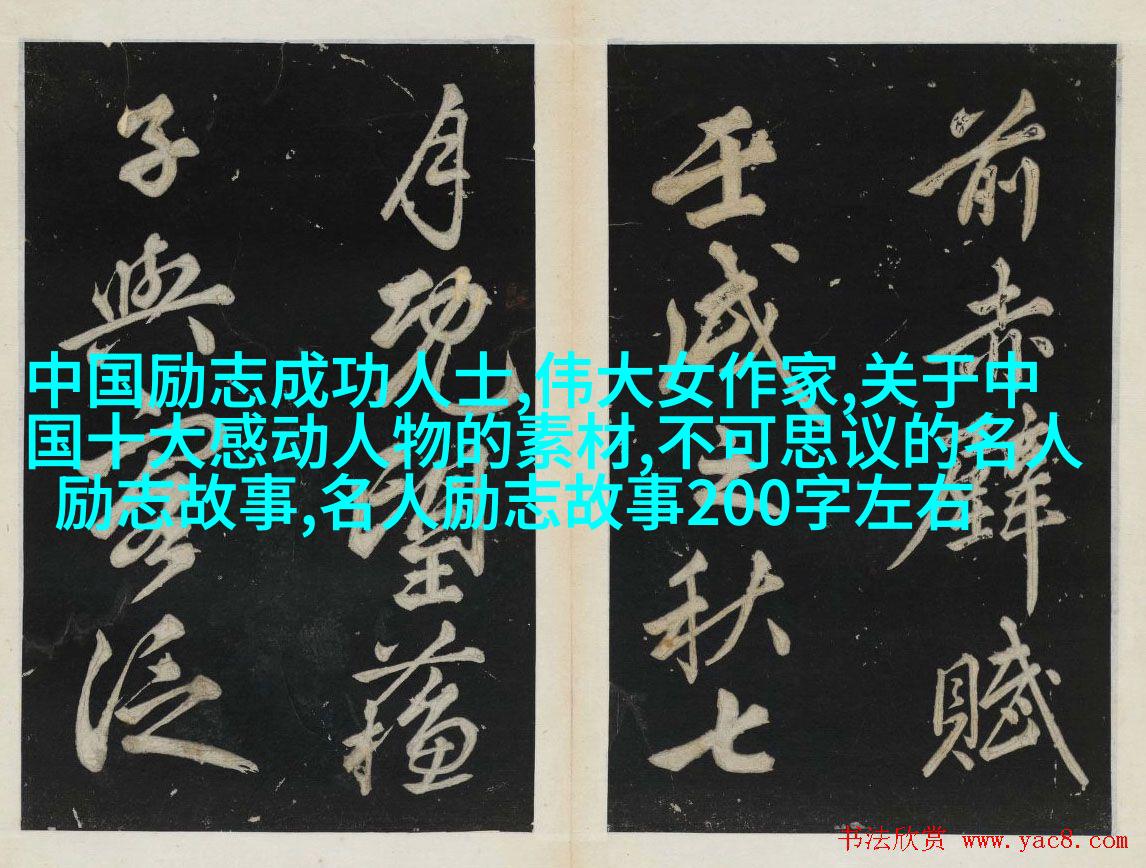 前赤壁賦
壬戌之秋七
月既望蘓
子與客泛
中国励志成功人士,伟大女作家,关于中
国十大感动人物的素材,不可思议的名人
励志故事,名人励志故事200字左右
书法欣赏 www.yac8.com